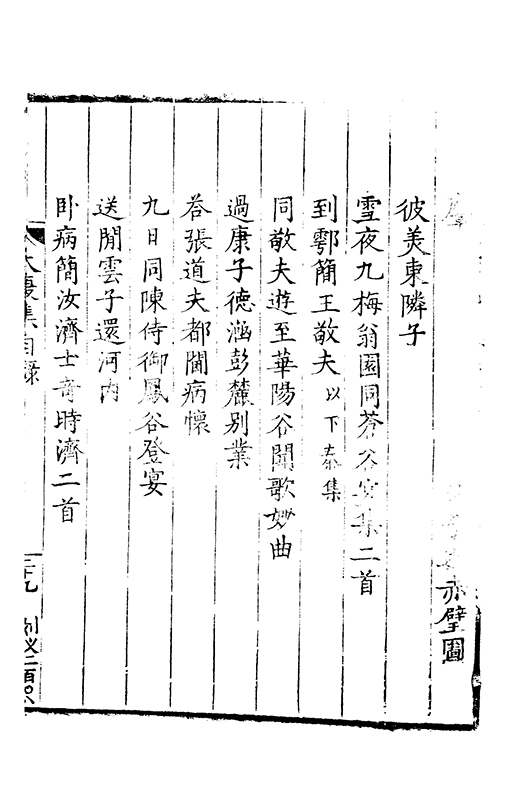 赤壁圖
彼美東隣子
雪夜九梅翁園同蒼谷宴集二首
到鄠簡王敬夫以下秦集
同敬夫遊至華陽谷聞歌妙曲
過康子德涵彭麓别業
荅張道夫都閫病懷
九日同陳侍御鳳谷登宴
送閒雲子還河内
卧病簡汝濟士奇時濟二首
太㣲集目錄
二十九